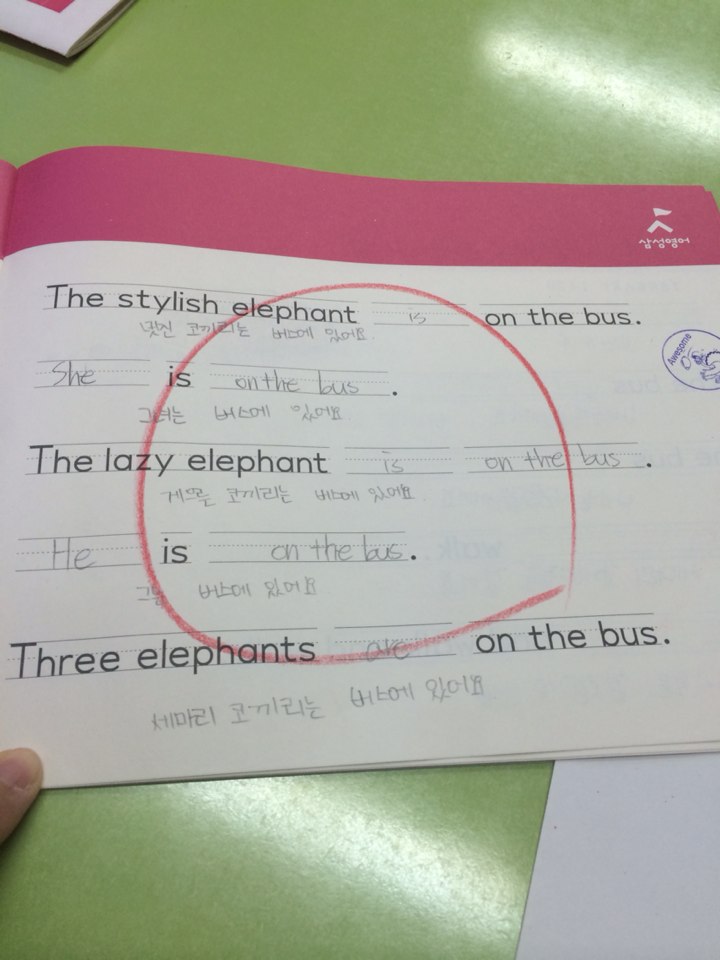 삼성영어
The stylish elephant is on the bus.
멋진 코끼리는 버스에 있어요
Awesome
She is on the bus.
그녀는 버스에 있어요
The lazy elephant is on the bus.
게으른 코끼리는 버스에 있어요
He is on the bus.
버스에 있어요
Three elephants are on the bus.
세마리 코끼리는 버스에 있어요